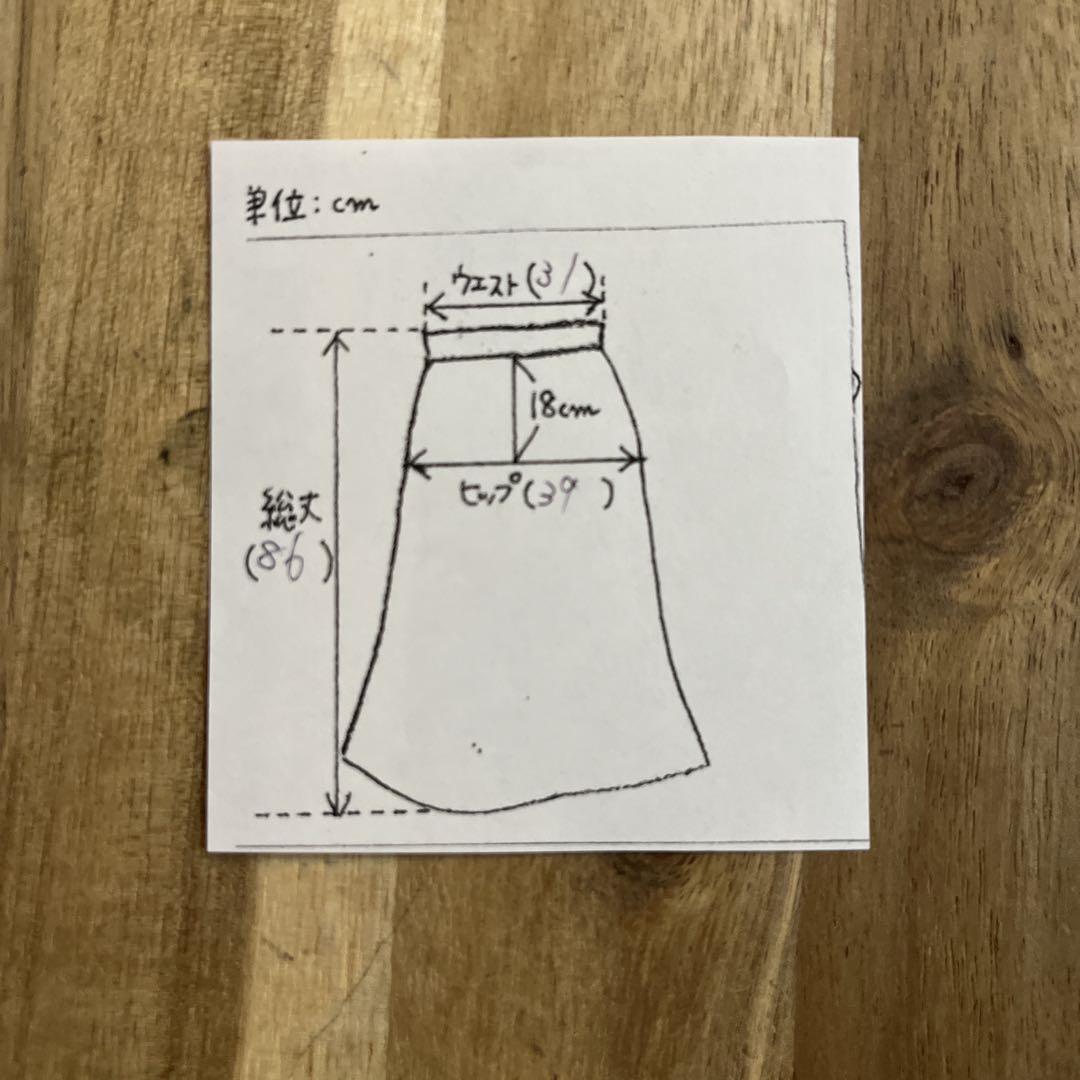 単位：cm
ウエスト(31)
18cm
ヒップ(39)
総丈
(86)